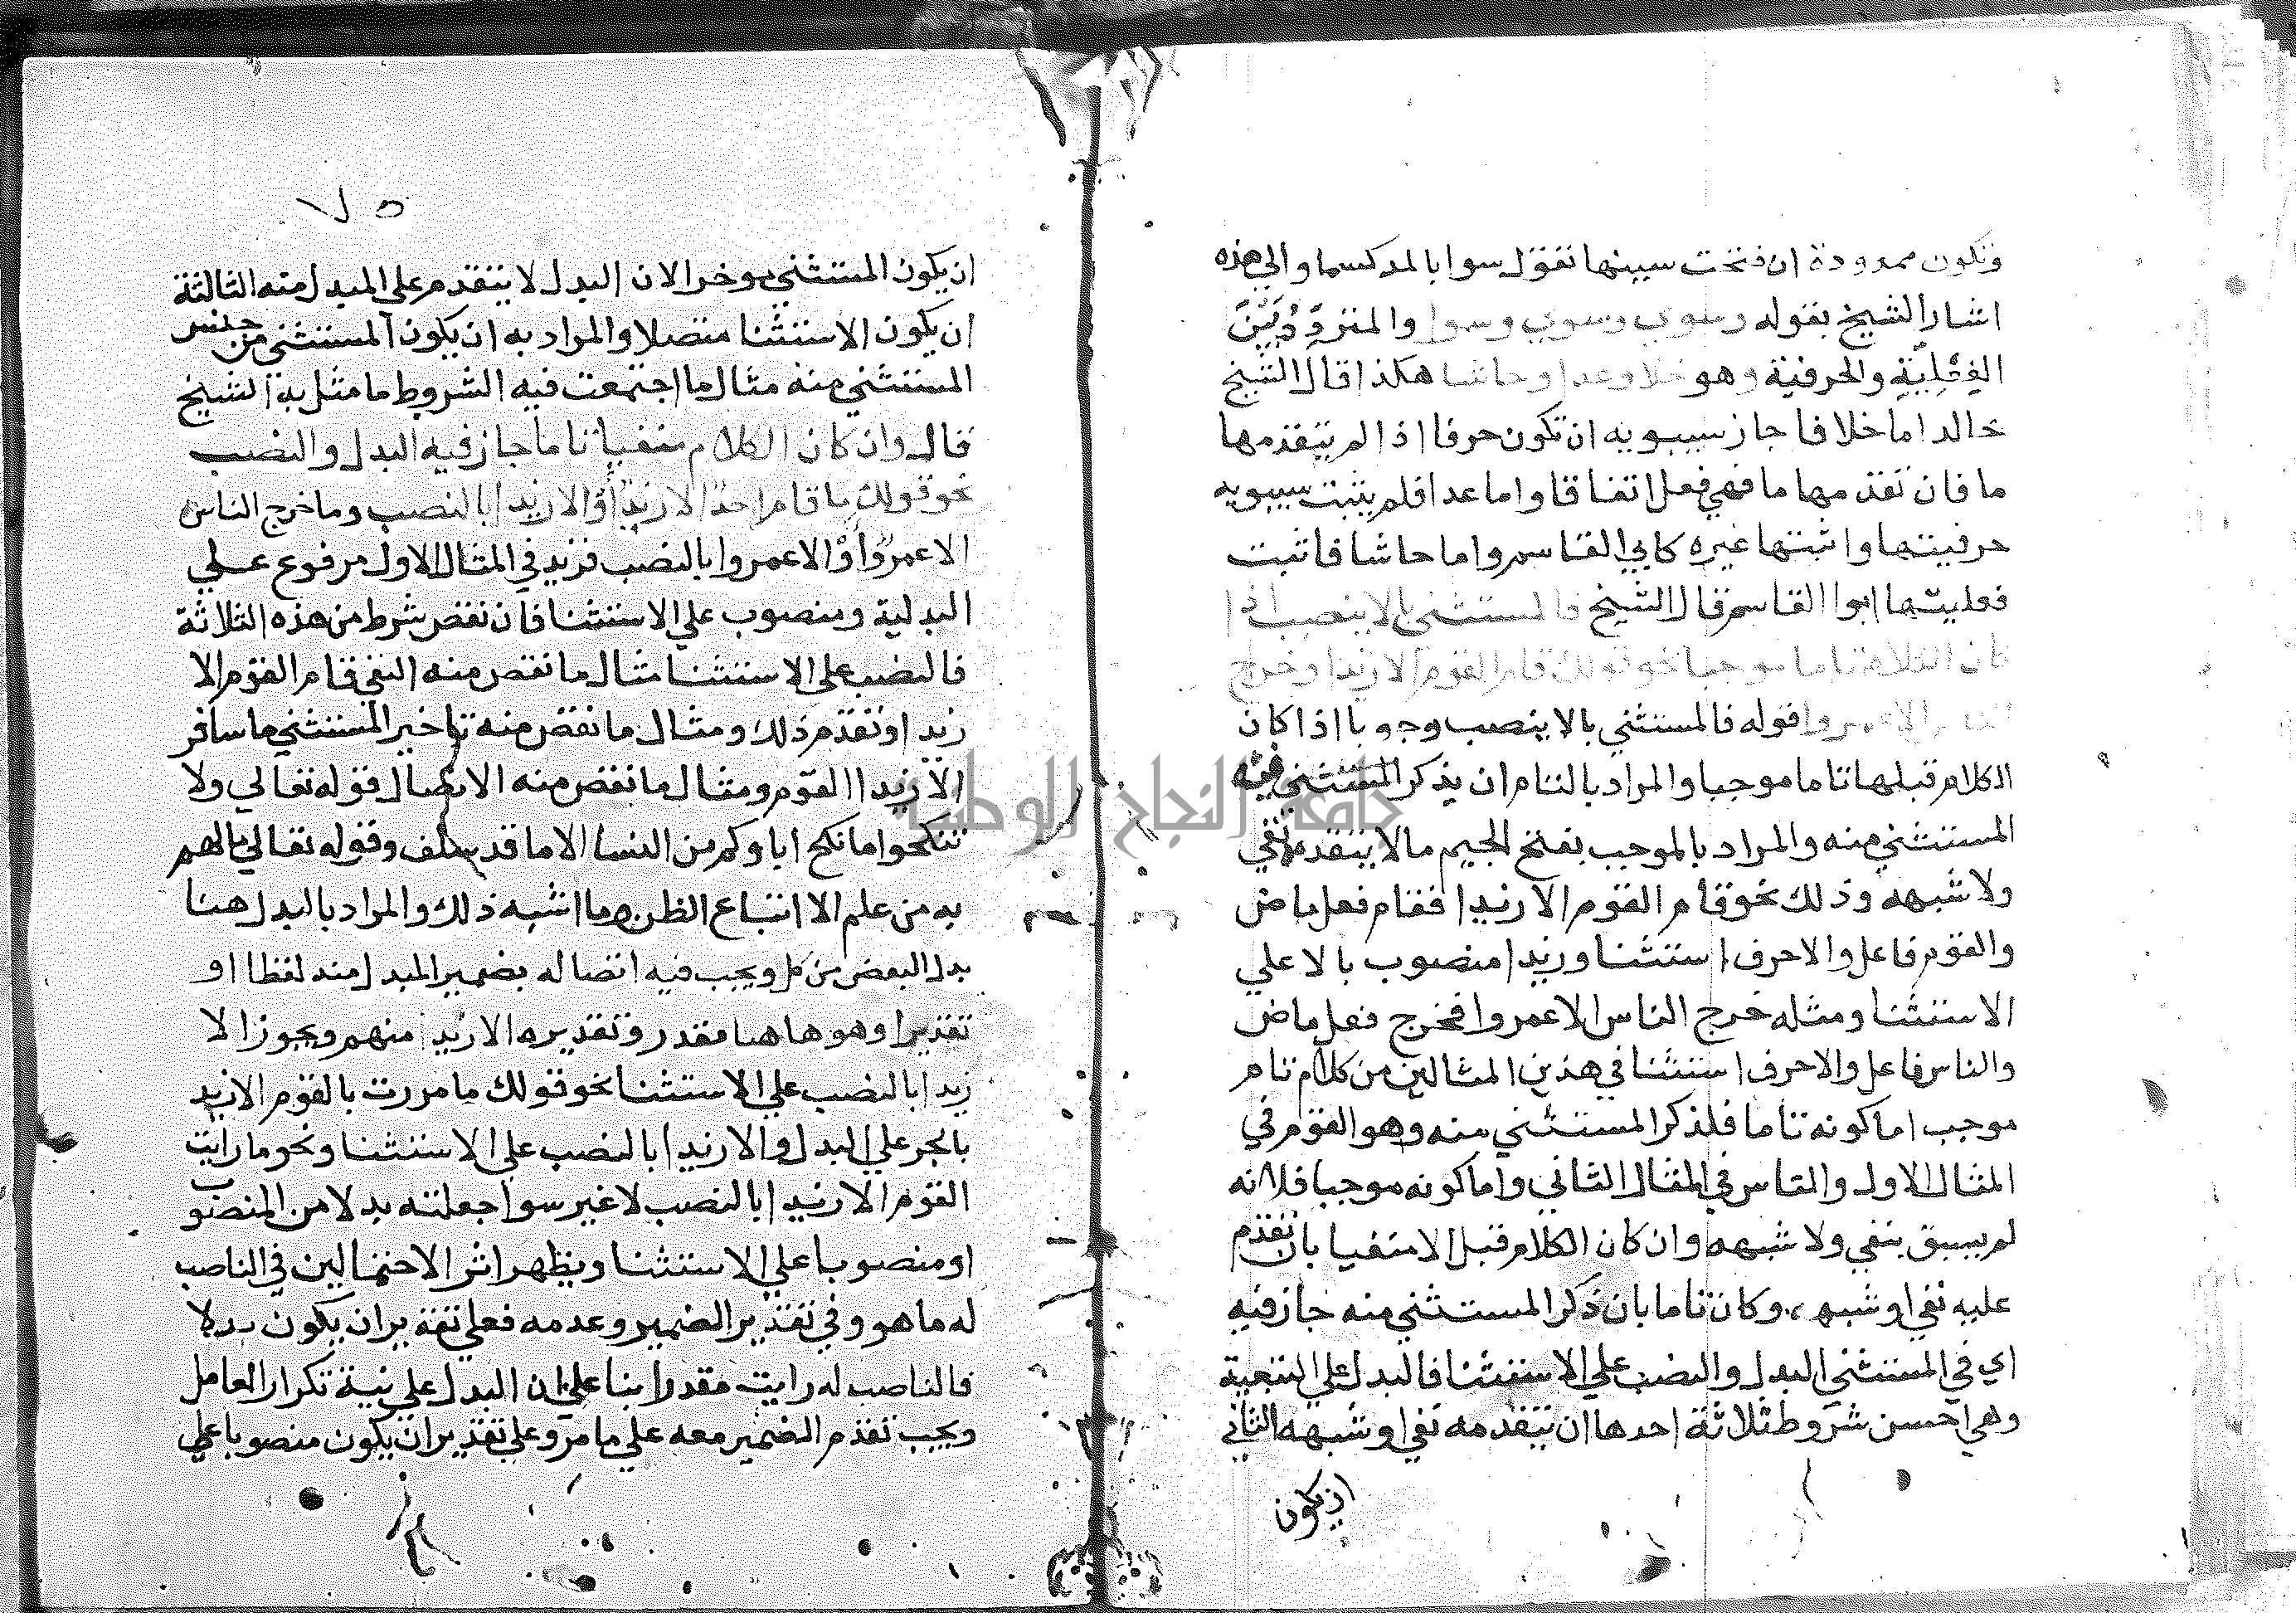 وتكون ممدودة ان فتحت سينها تقول سوا بالمد كسما والي هذه
اشار الشيخ بقوله وسوي وسوي وسوا والمترددة بين
الفعلية والحرفية وهو خلا وعدا وحاشا هكذا قال الشيخ
خالد اما خلا فاجاز سيبويه ان تكون حرفا اذا لم يتقدمها
ما فان تقدمها ما فهي فعل اتفاقا واما عدا فلم يثبت سيبويه
حرفيتها واثبتها غيره كابي القاسم واما حاشا فاثبت
فعليتها ابوا القاسم قال الشيخ فالمستثني بالا ينصب اذا
كان الكلام تاما موجبا نحو قولك قام القوم الا زيدا وخرج
الناس الا عمروا قوله فالمستثني بالا ينصب وجوبا اذا كان
الكلام قبلها تاما موجبا والمراد بالتام ان يذكر المستثني فيه
المستثني منه والمراد بالموجب بفتح الجيم ما لا يتقدمه نفي
ولا شبهه وذلك نحو قام القوم الا زيدا فقام فعل ماض
والقوم فاعل والا حرف استثنا وزيدا منصوب بالا علي
الاستثنا ومثله خرج الناس الا عمروا فخرج فعل ماض
والناس فاعل والا حرف استثنا في هذين المثالين من كلام تام
موجب اما كونه تاما فلذكر المستثني منه وهو القوم في
المثال الاول والناس في المثال الثاني واما كونه موجبا فلانه
لم يسبق بنفي ولا شبهه وان كان الكلام قبل الا منفيا بان تقدم
عليه نفي او شبهه وكان تاما بان ذكر المستثني منه جاز فيه
اي في المستثني البدل والنصب علي الاستثنا فالبدل علي التبعية
وهي احسن شروط ثلاثة احدها ان يتقدمه نفي او شبهه الثاني
ان يكون
٧٥
ان يكون المستثني موخرا لان البدل لا يتقدم علي المبدل منه الثالثة
ان يكون الاستثنا متصلا والمراد به ان يكون المستثني من جنس
المستثني منه مثال ما اجتمعت فيه الشروط ما مثل به الشيخ
قال وان كان الكلام منفيا تاما جاز فيه البدل والنصب
نحو قولك ما قام احد الا زيد او الا زيدا بالنصب وما خرج الناس
الا عمروا او الا عمروا بالنصب فزيد في المثال الاول مرفوع علي
البدلية ومنصوب علي الاستثنا فان نقص شرط من هذه الثلاثة
فالنصب علي الاستثنا مثال ما نقص منه النفي قام القوم الا
زيدا وتقدم ذلك ومثال ما نقص منه تاخير المستثني ما سافر
الا زيدا القوم ومثال ما نقص منه الاتصال قوله تعالي ولا
تنكحوا ما نكح اباوكم من النسا الا ما قد سلف وقوله تعالي مالهم
به من علم الا اتباع الظن وما اشبه ذلك والمراد بالبدل هنا
بدل البعض من كل ويجب فيه اتصاله بضمير المبدل منه لفظا او
تقديرا وهو هاهنا مقدر وتقديره الا زيدا منهم ويجوز الا
زيدا بالنصب علي الاستثنا نحو قولك ما مررت بالقوم الا زيد
بالجر علي البدل والا زيدا بالنصب علي الاستثنا ونحو ما رايت
القوم الا زيدا بالنصب لا غير سوا جعلته بدلا من المنصوب
او منصوبا علي الاستثنا ويظهر اثر الاحتمالين في الناصب
له ما هو وفي تقدير الضمير وعدمه فعلي تقدير ان يكون بدلا
فالناصب له رايت مقدرا بنا علي ان البدل علي نية تكرار العامل
ويجب تقدم الضمير معه علي ما مر وعلي تقدير ان يكون منصوبا علي
جامعة النجاح الوطنية